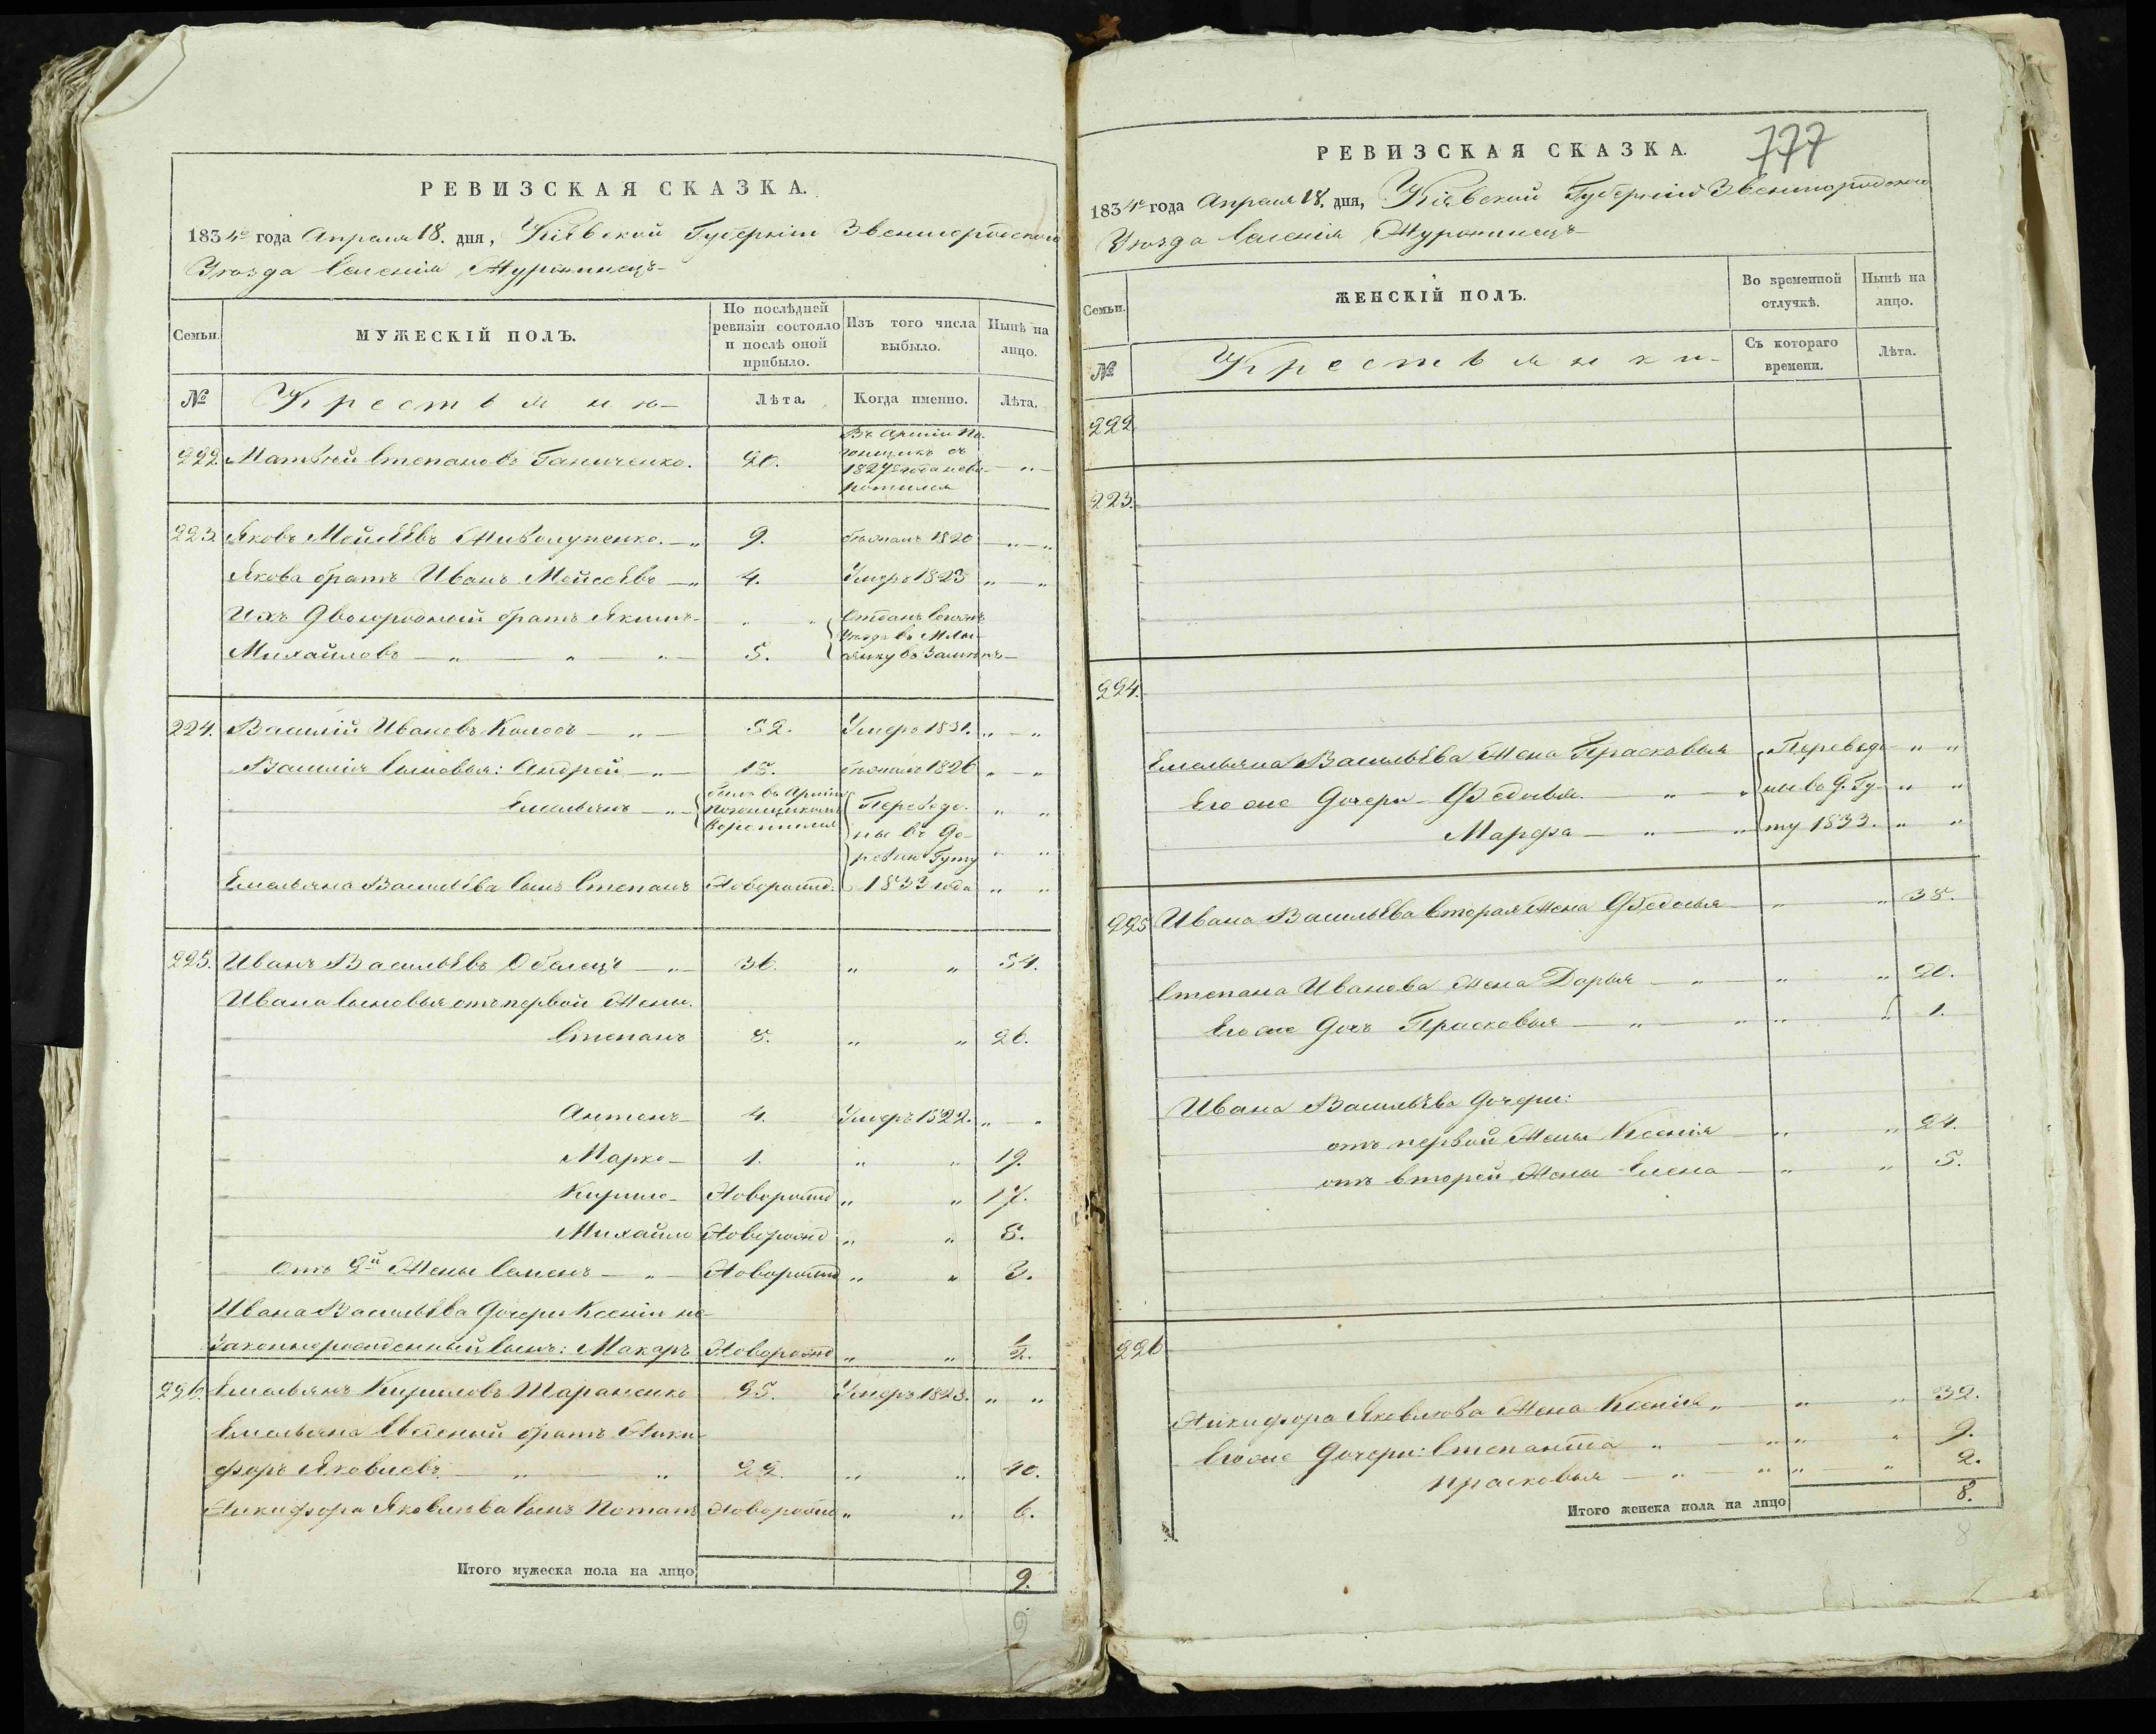 РЕВИЗСКАЯ СКАЗКА.
1834го года Апреля 18. дня, Кіевской Губерніи Звенигородского
Уезда Селенія Журжинецъ
Семьи.
МУЖЕСКІЙ ПОЛЪ.
По послѣдней ревизіи состояло и послѣ оной прибыло.
Изъ того числа выбыло.
Нынѣ на лицо.
№
Крестьяне
Лѣта.
Когда именно.
Лѣта.
222. Матвей Степановъ Ганиченко. 20. Въ Армии по-
гонщик съ
1827го года нево-
ротился
223. Яковъ Мойсеевъ 9. бежалъ 1820
Якова братъ Иванъ Мойсеевъ 4. Умеръ 1823
Ихъ двоюродный братъ Якимъ
Михайловъ 5.
224. Василій Ивановъ Колосъ 52. Умеръ 1831.
Василія сыновья: Андрей 15. бежалъ 1826
Емельянъ былъ въ Арміи погонщикомъ воротился
Переведе-
ны въ де-
ревню Гуту
1833 года
Емельяна Васильева сынъ Степанъ Новорожд.
225. Иванъ Васильевъ 36. 54.
Ивана сыновья отъ первой жены.
Степанъ 8. 26.
Антонъ 4. Умеръ 1822.
Марко 1. 19.
Кирило Новорожд 17.
Михайло Новорожд 8.
Отъ 2й жены Семенъ Новорожд 3.
Ивана Васильева дочери Ксеніи не-
законнорожденный сынъ: Макаръ Новорожд 1/2.
226. Емельянъ Кириловъ Тараненко 25. Умеръ 1823.
Емельяна Сведеный братъ Ники-
форъ Яковлевъ 22. 40.
Никифора Яковлева сынъ Потапъ Новорожд 6.
Итого мужеска пола на лицо 9.
9
777
РЕВИЗСКАЯ СКАЗКА.
1834го года Апреля 18. дня, Кіевской Губерніи Звенигородского
Уезда Селенія Журжинецъ
Семьи.
ЖЕНСКІЙ ПОЛЪ.
Во временной отлучкѣ.
Нынѣ на лицо.
№
Крестьянки
Съ котораго времени.
Лѣта.
222
223.
224.
Емельяна Васильева жена Прасковья Переведе-
Его же дочери Федосья ны въ д. Гу-
Марфа ту 1833.
225 Ивана Васильева вторая жена Федосья 38.
Степана Иванова жена Дарья 20.
Его же дочь Прасковья 1.
Ивана Васильева дочери:
отъ первой жены Ксенія 24.
отъ второй жены Елена 5.
226
Никифора Яковлева жена Ксенія 32.
Его же дочери: Степанида 9.
Прасковья 2.
Итого женска пола на лицо 8.
8